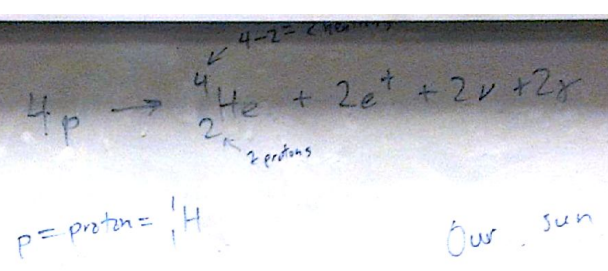 4-2=
4p → ⁴₂He + 2e⁺ + 2ν + 2γ
2 protons
p = proton = ¹₁H
Our sun